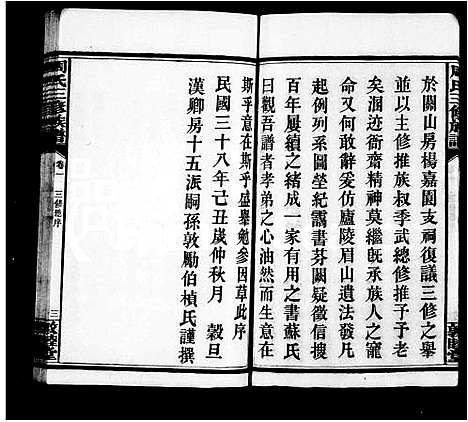 於關山房楊嘉園支祠復議三修之舉
並以主修推族叔季武總修推予予老
矣涸迹衙齋精神莫繼旣承族人之寵
命又何敢辭爰仿廬陵眉山遺法發凡
起例列系圖塋紀靄書芬闕疑徵信搜
百年屢續之緒成一家有用之書蘇氏
曰觀吾譜者孝弟之心油然而生意在
斯乎意在斯乎盛舉勉參因草此序
民國三十八年己丑歲仲秋月 穀旦
漢卿房十五派嗣孫敦勵伯楨氏謹撰
周氏三修族譜
卷一 三修總序
三
敦睦堂